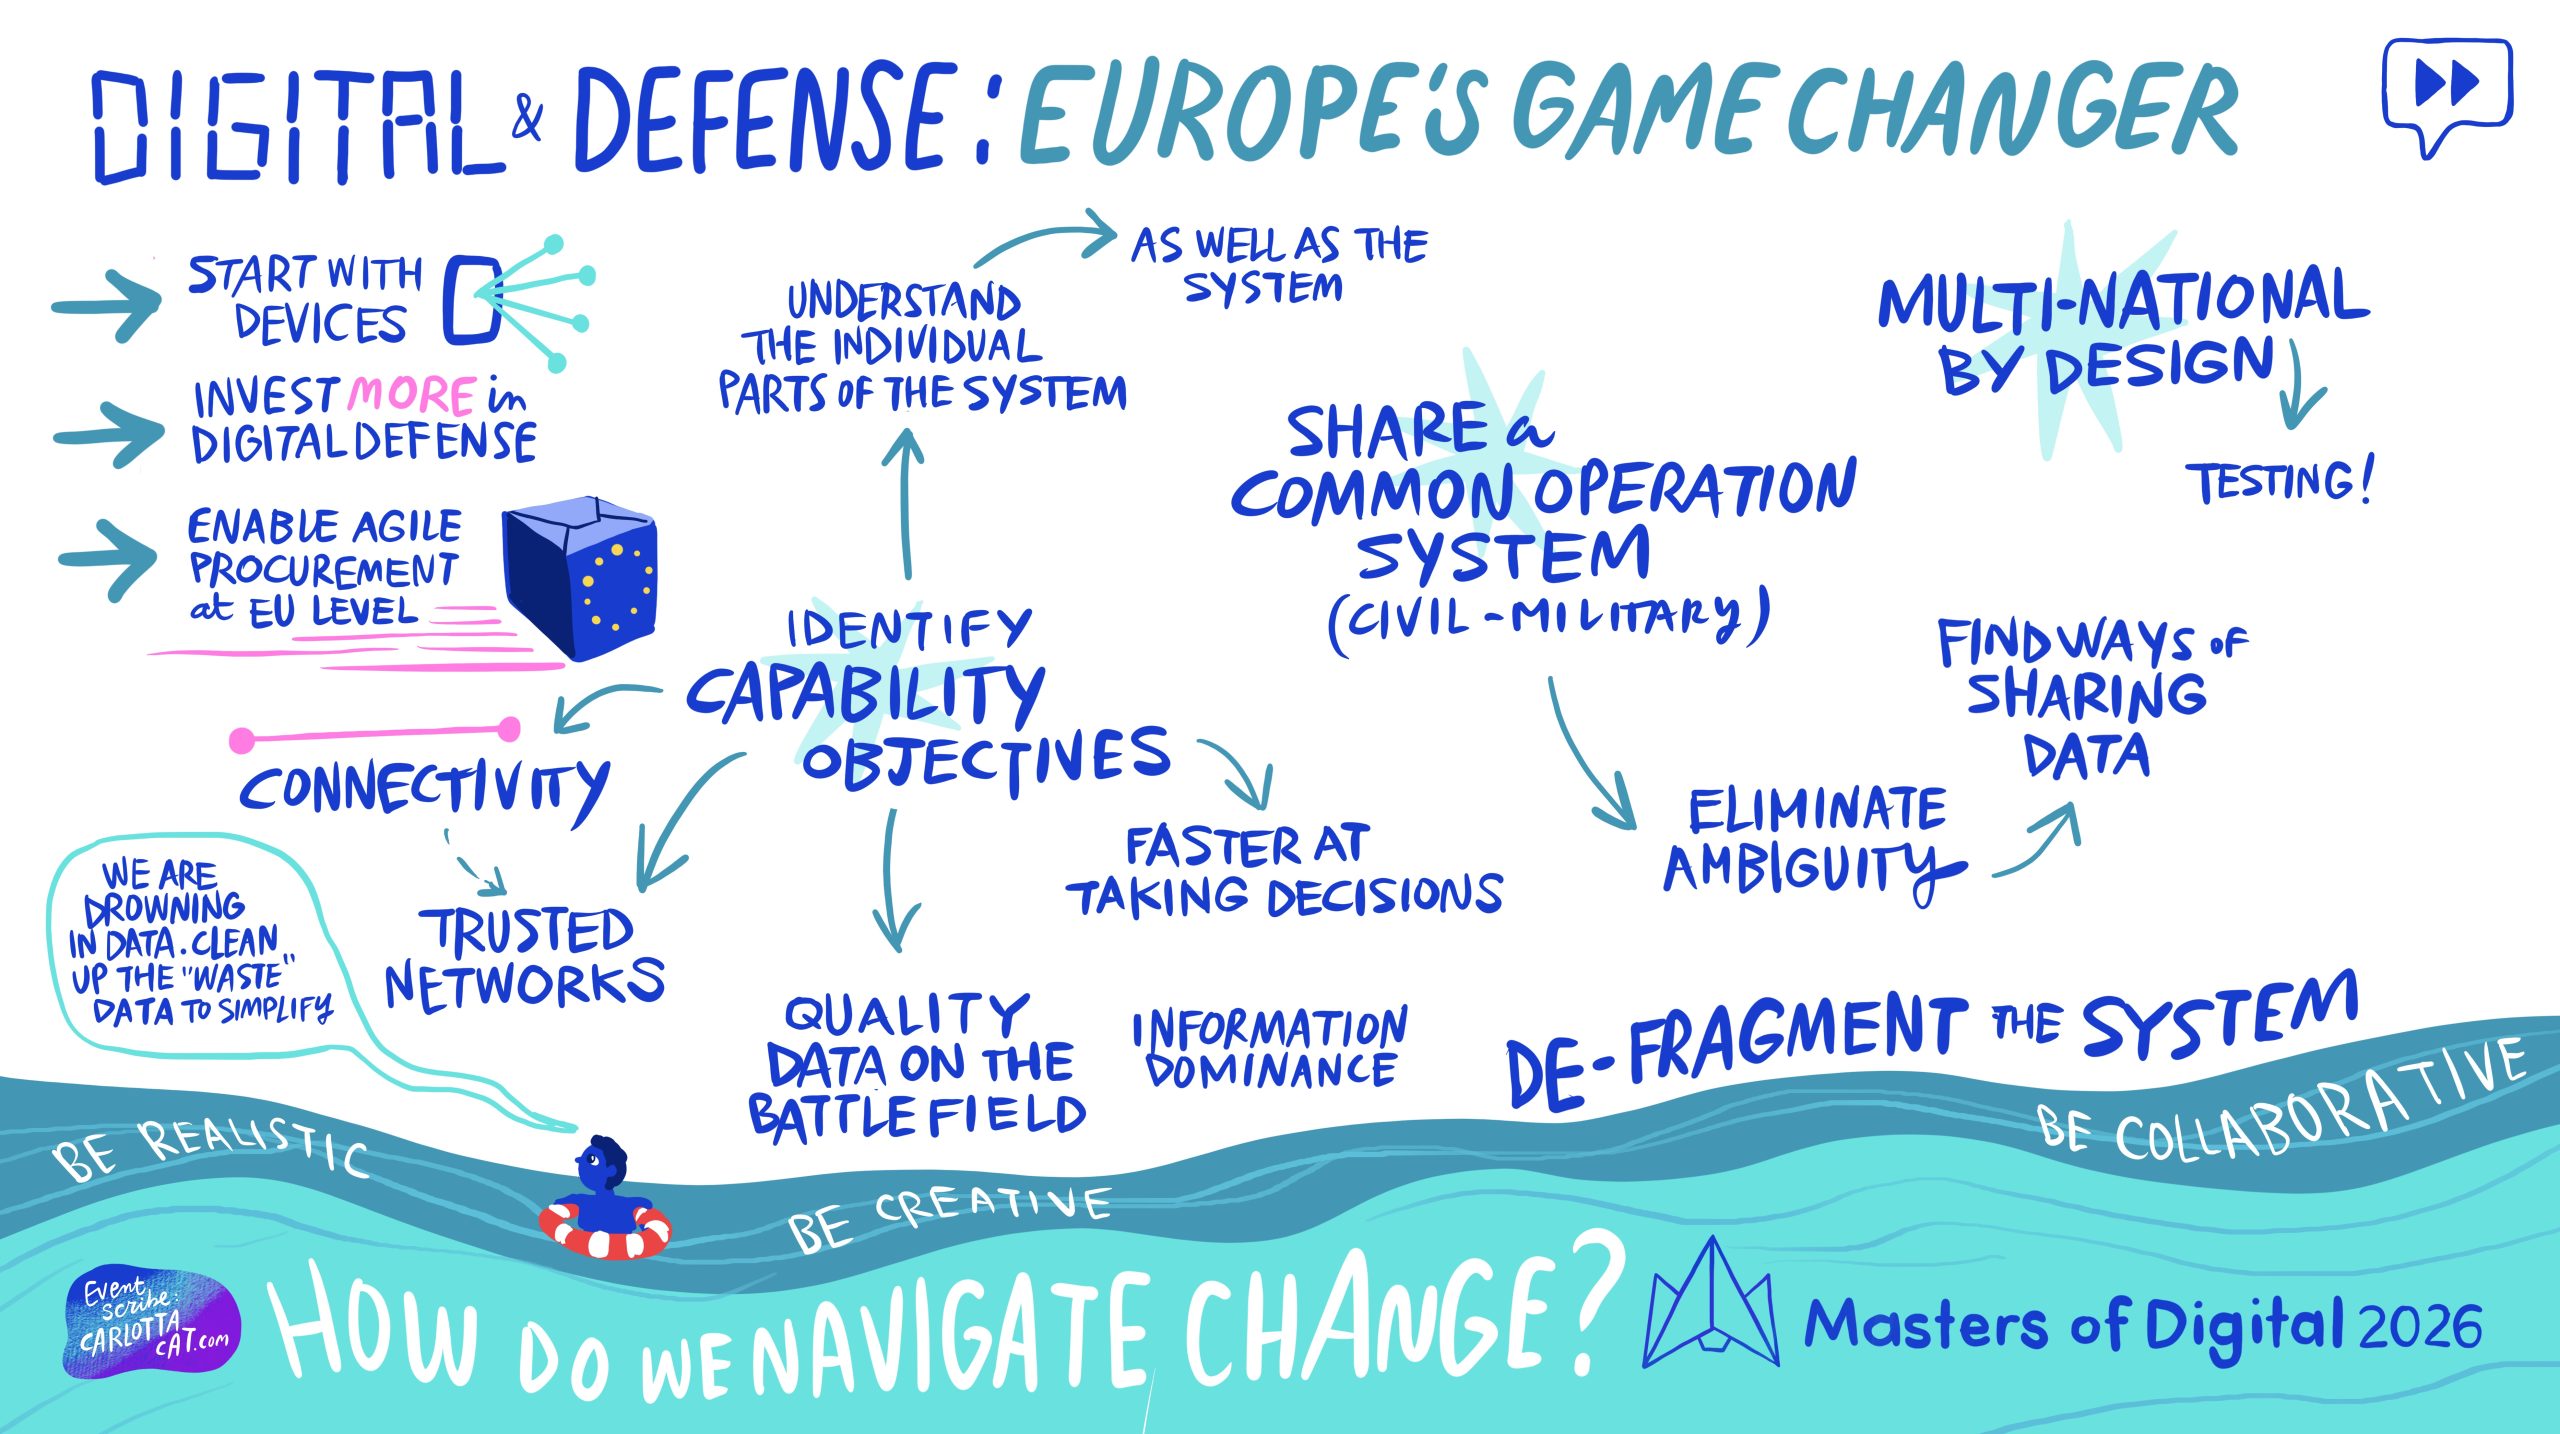 DIGITAL & DEFENSE: EUROPE'S GAME CHANGER
START WITH
DEVICES
INVEST MORE in
DIGITAL DEFENSE
ENABLE AGILE
PROCUREMENT
at EU LEVEL
UNDERSTAND
THE INDIVIDUAL
PARTS OF THE SYSTEM
AS WELL AS THE
SYSTEM
IDENTIFY
CAPABILITY
OBJECTIVES
CONNECTIVITY
TRUSTED
NETWORKS
QUALITY
DATA ON THE
BATTLEFIELD
FASTER AT
TAKING DECISIONS
INFORMATION
DOMINANCE
SHARE a
COMMON OPERATION
SYSTEM
(CIVIL-MILITARY)
ELIMINATE
AMBIGUITY
FIND WAYS OF
SHARING
DATA
MULTI-NATIONAL
BY DESIGN
TESTING!
DE-FRAGMENT THE SYSTEM
WE ARE
DROWNING
IN DATA. CLEAN
UP THE "WASTE"
DATA TO SIMPLIFY
BE REALISTIC
BE CREATIVE
BE COLLABORATIVE
Event
scribe:
CARLOTTA
CAT.com
HOW DO WE NAVIGATE CHANGE?
Masters of Digital 2026